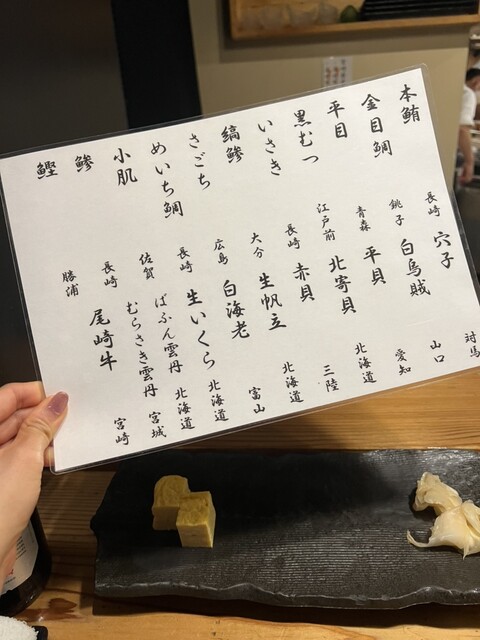 本鮪 長崎
金目鯛 銚子
平目 青森
黒むつ 江戸前
いさき 長崎
縞鯵 大分
さごち 広島
めいち鯛 長崎
小肌 佐賀
鯵 長崎
鰹 勝浦
穴子 対馬
白烏賊 山口
平貝 愛知
北寄貝 北海道
赤貝 三陸
生帆立 北海道
白海老 富山
生いくら 北海道
ばふん雲丹 北海道
むらさき雲丹 宮城
尾崎牛 宮崎